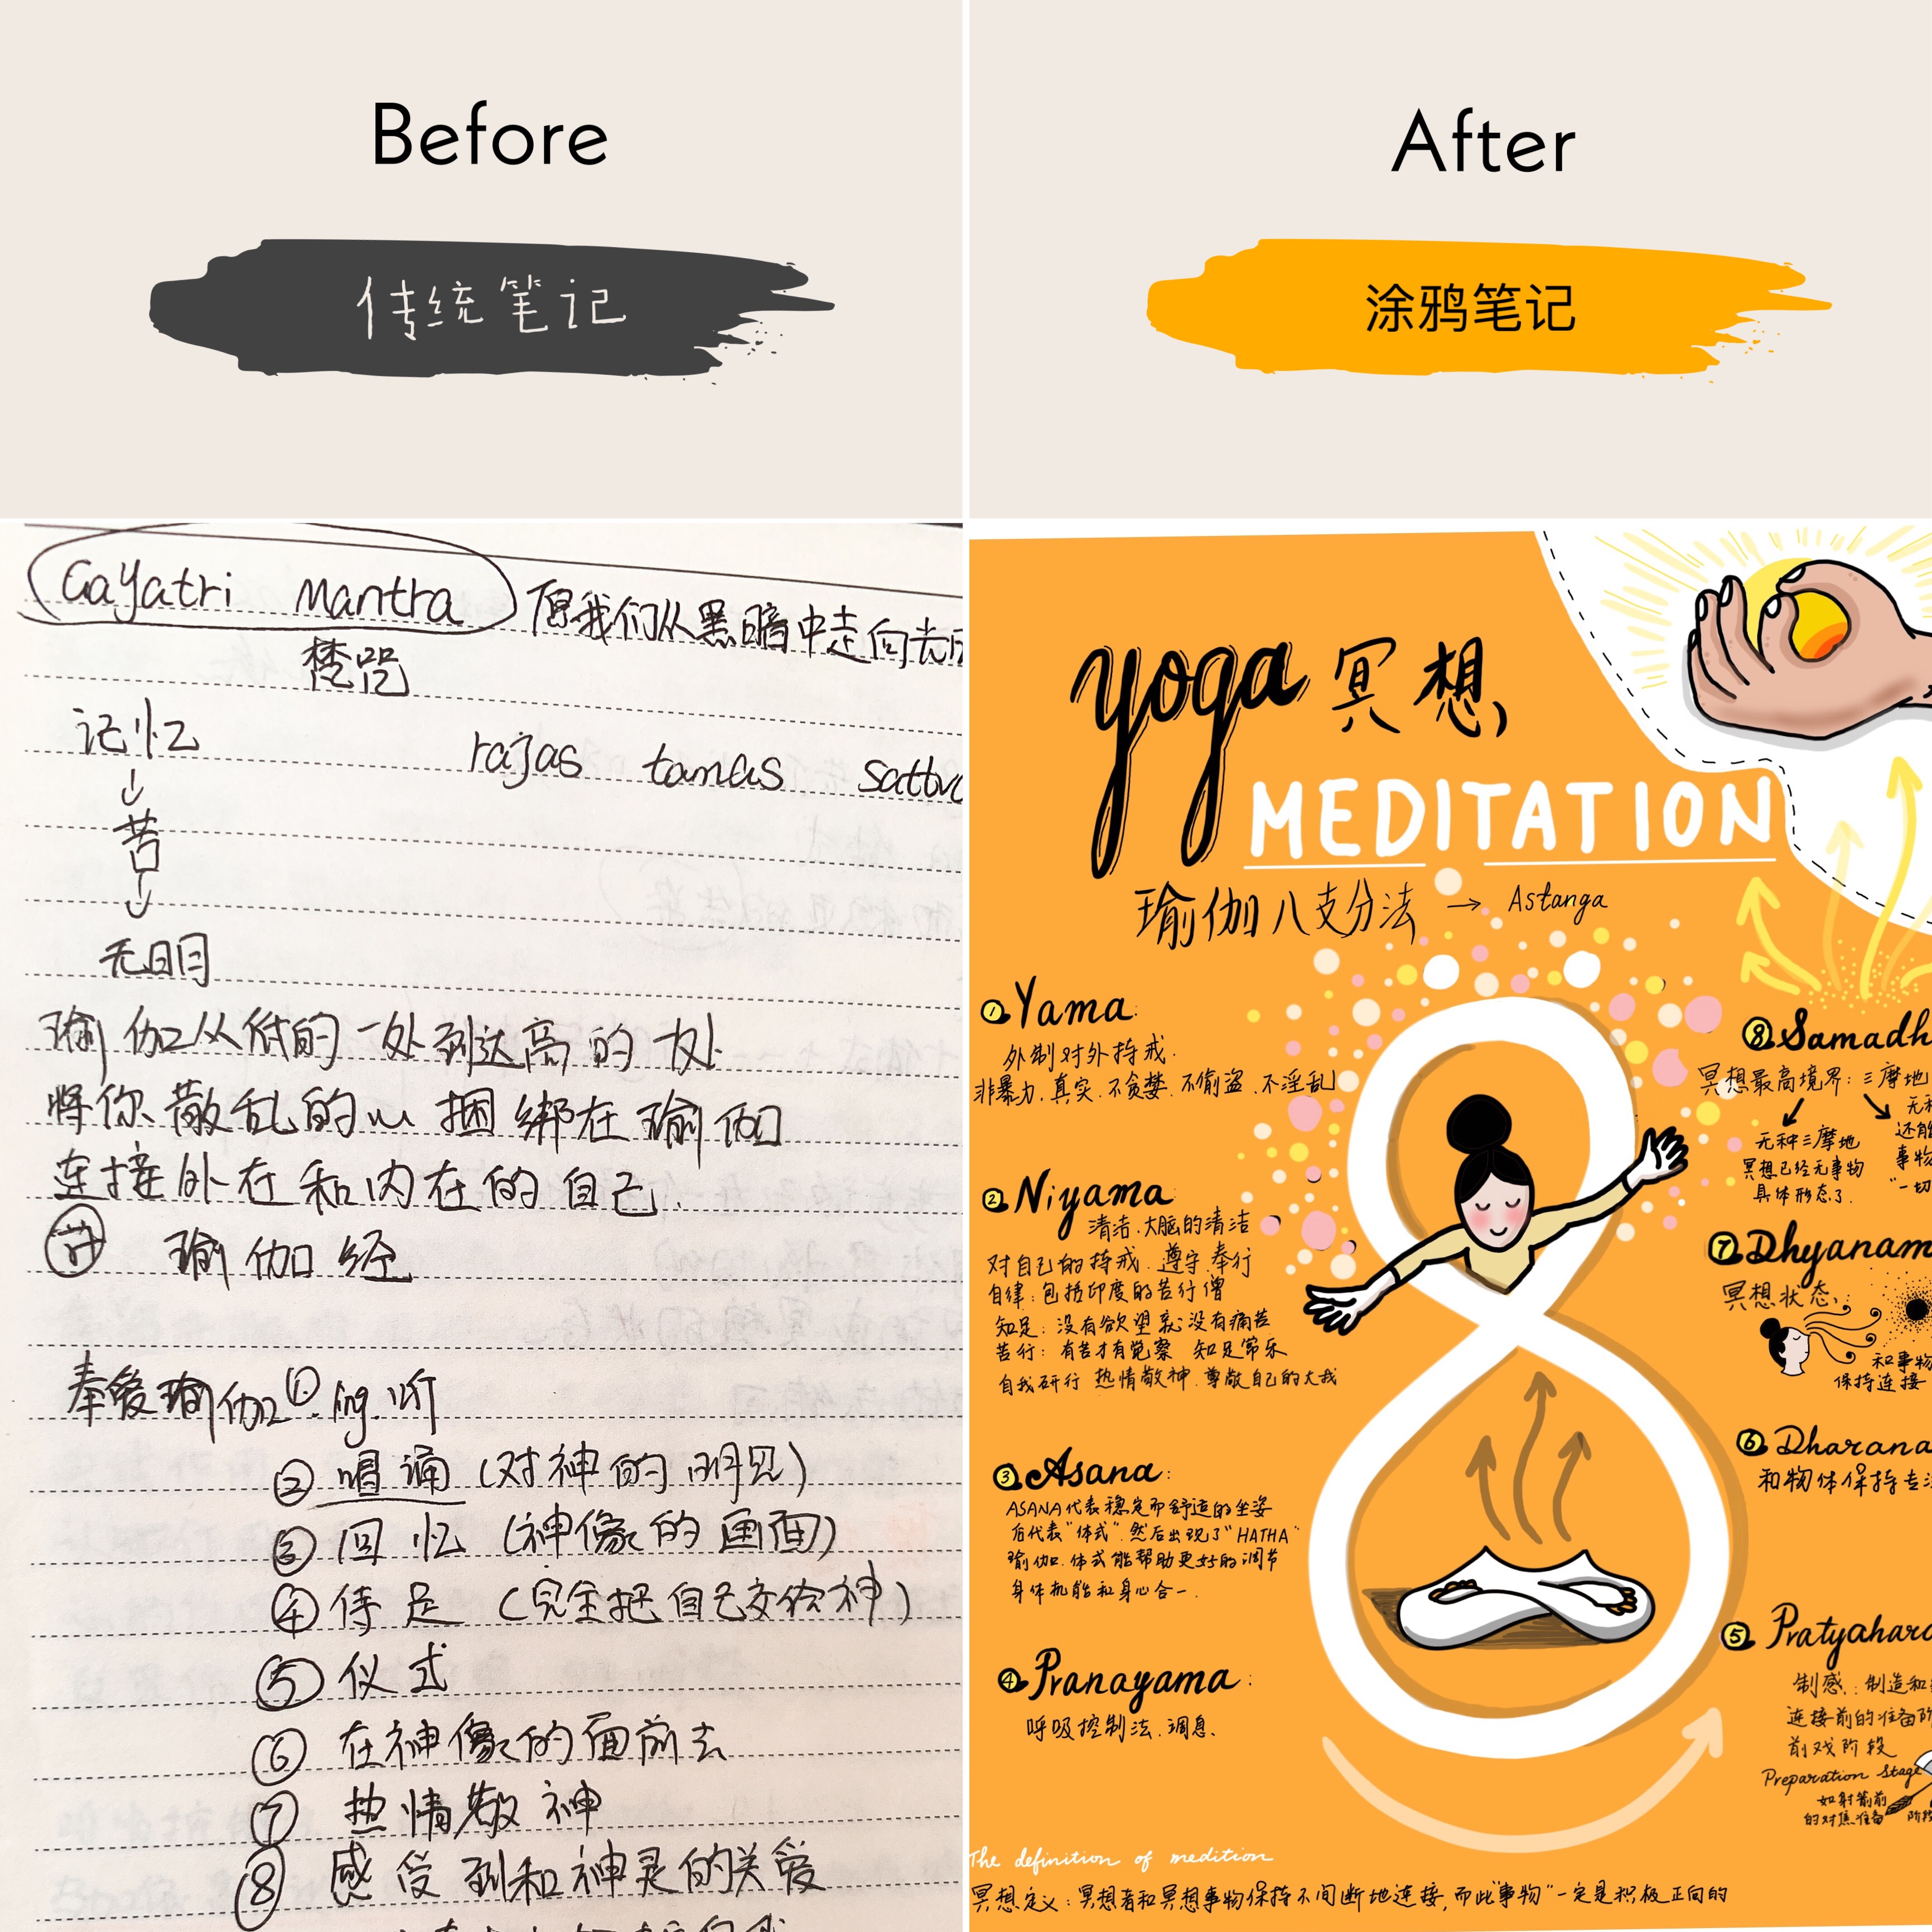 Before
传统笔记
After
涂鸦笔记
Gayatri Mantra 愿我们从黑暗中走向光
梵咒
记忆
rajas tamas sattva
↓
苦
↓
无明
瑜伽从低的一处到达高的一处
将你散乱的心捆绑在瑜伽
连接外在和内在的自己.
瑜伽经
奉爱瑜伽 ①. ing. 听
② 唱诵 (对神的明见)
③ 回忆 (神像的画面)
④ 侍足 (完全把自己交给神)
⑤ 仪式
⑥ 在神像的面前去
⑦ 热情敬神
⑧ 感受到和神灵的关爱
yoga 冥想,
MEDITATION
瑜伽八支分法 → Astanga
① Yama:
外制对外持戒.
非暴力.真实.不贪婪.不偷盗.不淫乱
② Niyama
清洁.大脑的清洁
对自己的持戒.遵守.奉行
自律:包括印度的苦行僧
知足:没有欲望就没有痛苦
苦行:有苦才有觉察 知足常乐
自我研行 热情敬神.尊敬自己的大我
③ Asana:
ASANA代表稳定而舒适的坐姿
后代表"体式".然后出现了"HATHA"
瑜伽.体式能帮助更好的调节
身体机能和身心合一.
④ Pranayama:
呼吸控制法.调息.
⑧ Samadh
冥想最高境界:三摩地
无种三摩地
冥想已经无事物
具体形态了.
无种
还能
事物
"一切
⑦ Dhyanam
冥想状态:
和事物
保持连接
⑥ Dharana
和物体保持专注
⑤ Pratyahara
制感:制造和
连接前的准备阶
前戏阶段
Preparation Stage
如射箭前
的对焦准备
阶段
The definition of medition
冥想定义:冥想者和冥想事物保持不间断地连接,而此"事物"一定是积极正向的